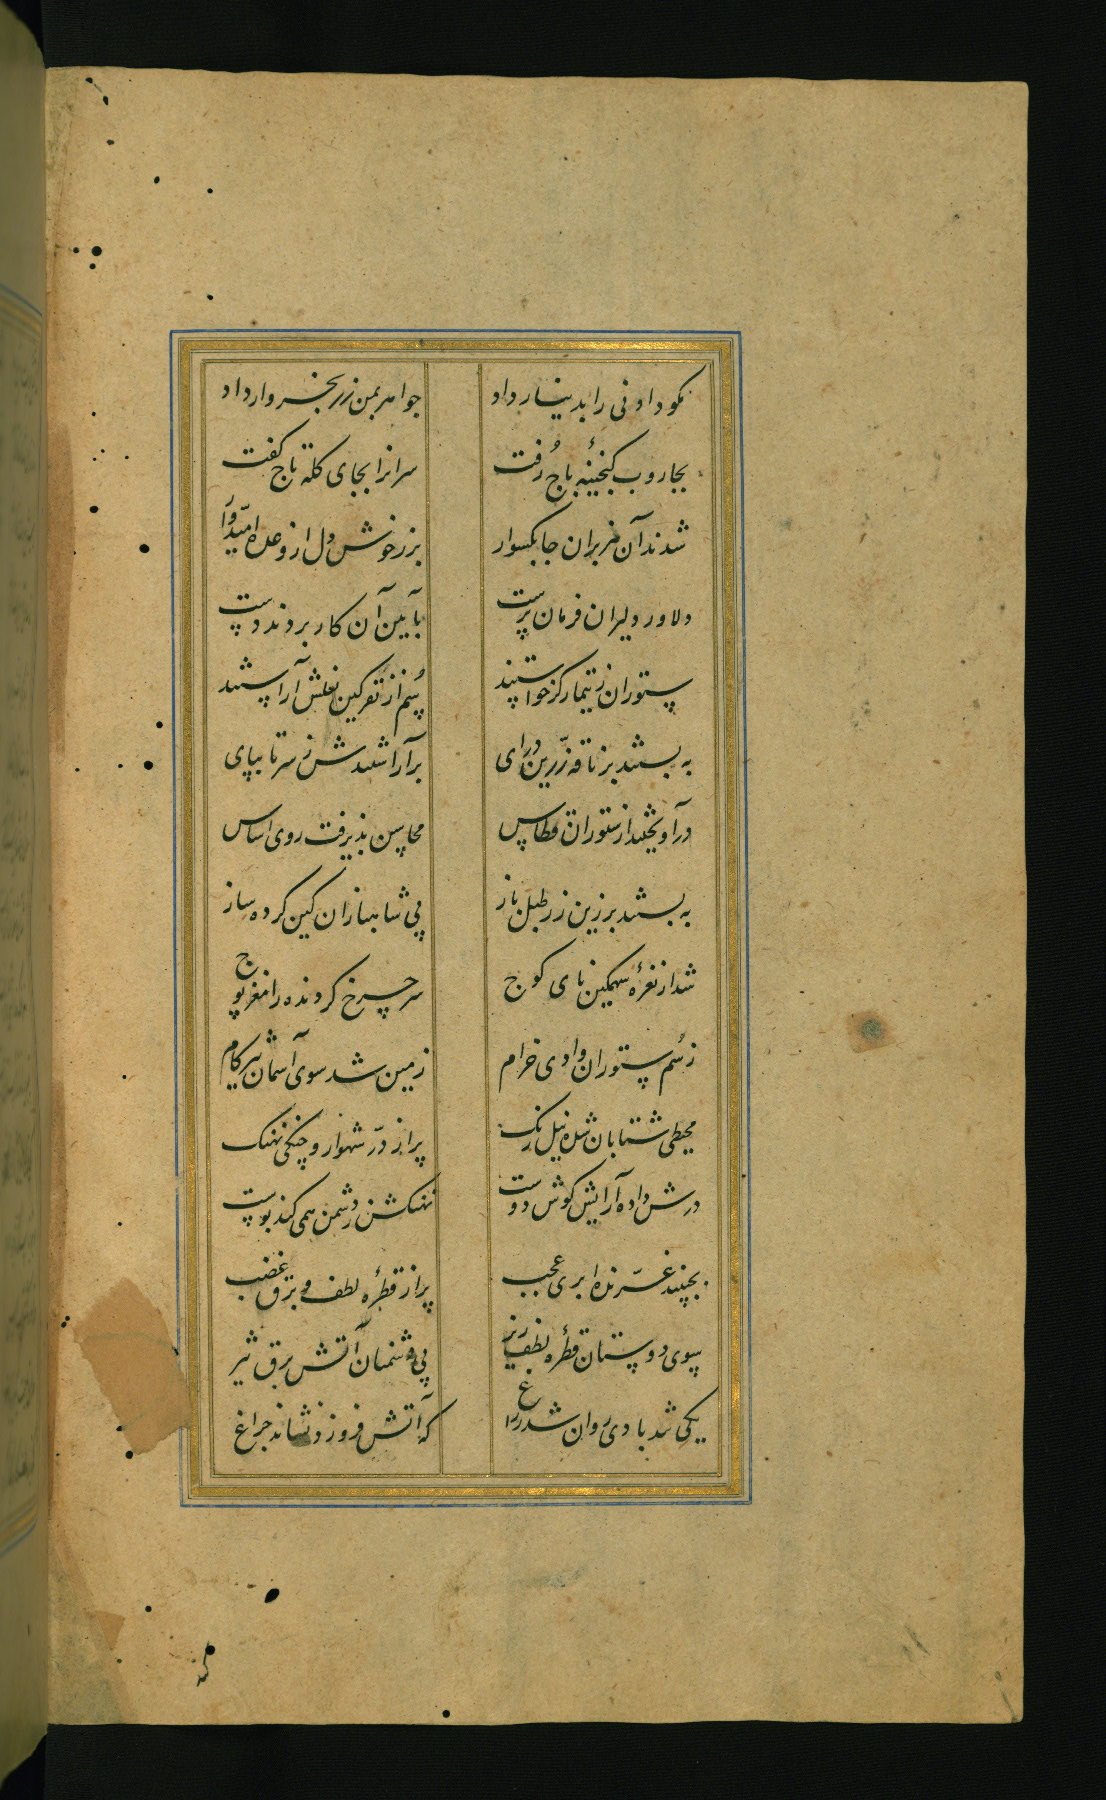 نکو داد نی را بدینار داد جواهر بمن زر بخروار داد
بجاروب گنجینهٔ باج رُفت سرانرا بجای کله تاج کفت
شدند آن هزبران چابکسوار بزر خوش دل از وعده امیدوار
دلاور دلیران فرمان پرست بآیین آن کار بردند دست
ستوران ز تیمار کز خواستند سُم از نقره کین نعلش آراستند
به بستند بر ناقه زرّین درای برآراستندش ز سر تا بپای
درآویختند از ستوران قطاس محاسن پذیرفت روی اساس
به بستند بر زین زر طبل باز پی شاهبازان کین کرده ساز
شد از نعرهٔ سهمگین نای کوج سر چرخ کردنده را مغز پوج
ز سُم ستوران وادی خرام زمین شد سوی آسمان تیزکام
محیطی شتابان شده نیل رنک پر از درّ شهوار و جنکی نهنک
درش داده آرایش کوش دوست نهنکش ز دشمن همی کند پوست
بجنبید غرّنده ابری عجب پر از قطرهٔ لطف و برق غضب
بسوی دوستان قطرهٔ لطف ریز پی دشمنان آتش برق تیز
یکی تند بادی روان شد ز راغ که آتش فروزد نشاند چراغ